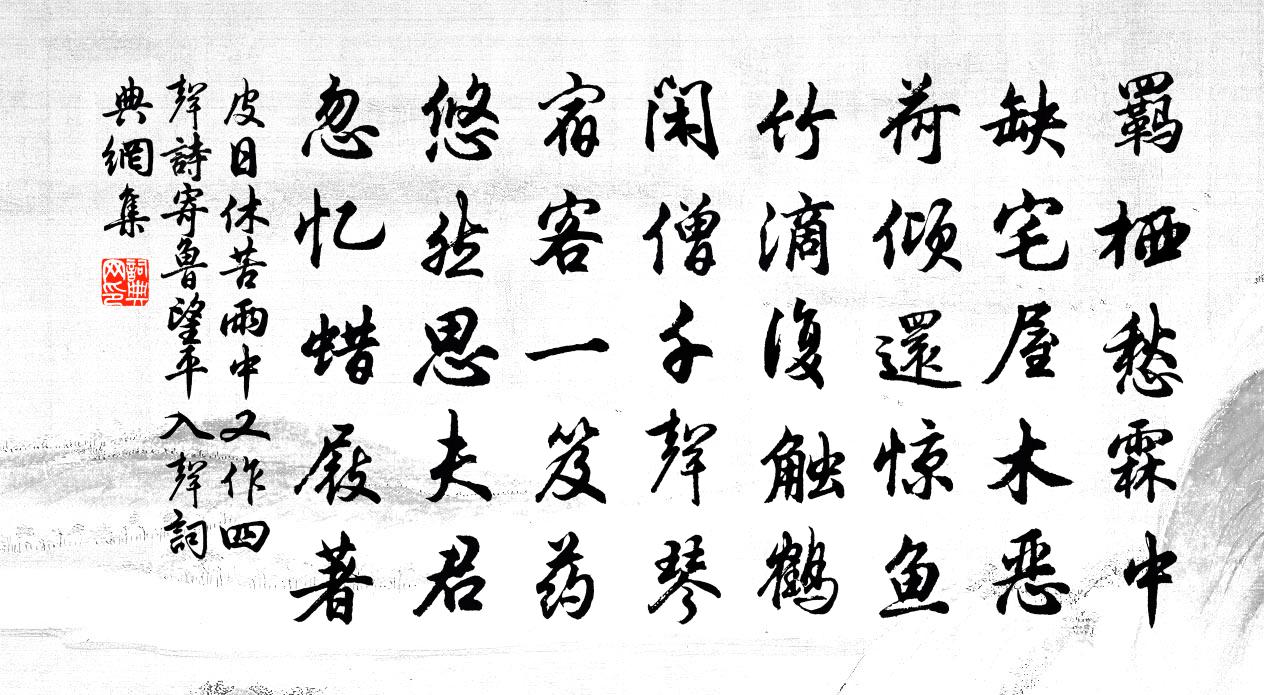 羁栖愁霖中
缺宅屋木恶
荷倾還惊鱼
竹滴復触鹤
闲僧千聲琴
宿客一笈药
悠然思夫君
忽忆蜡屐著
皮日休苦雨中又作四
聲詩寄魯望平入聲詞
典網集
詞典
网印